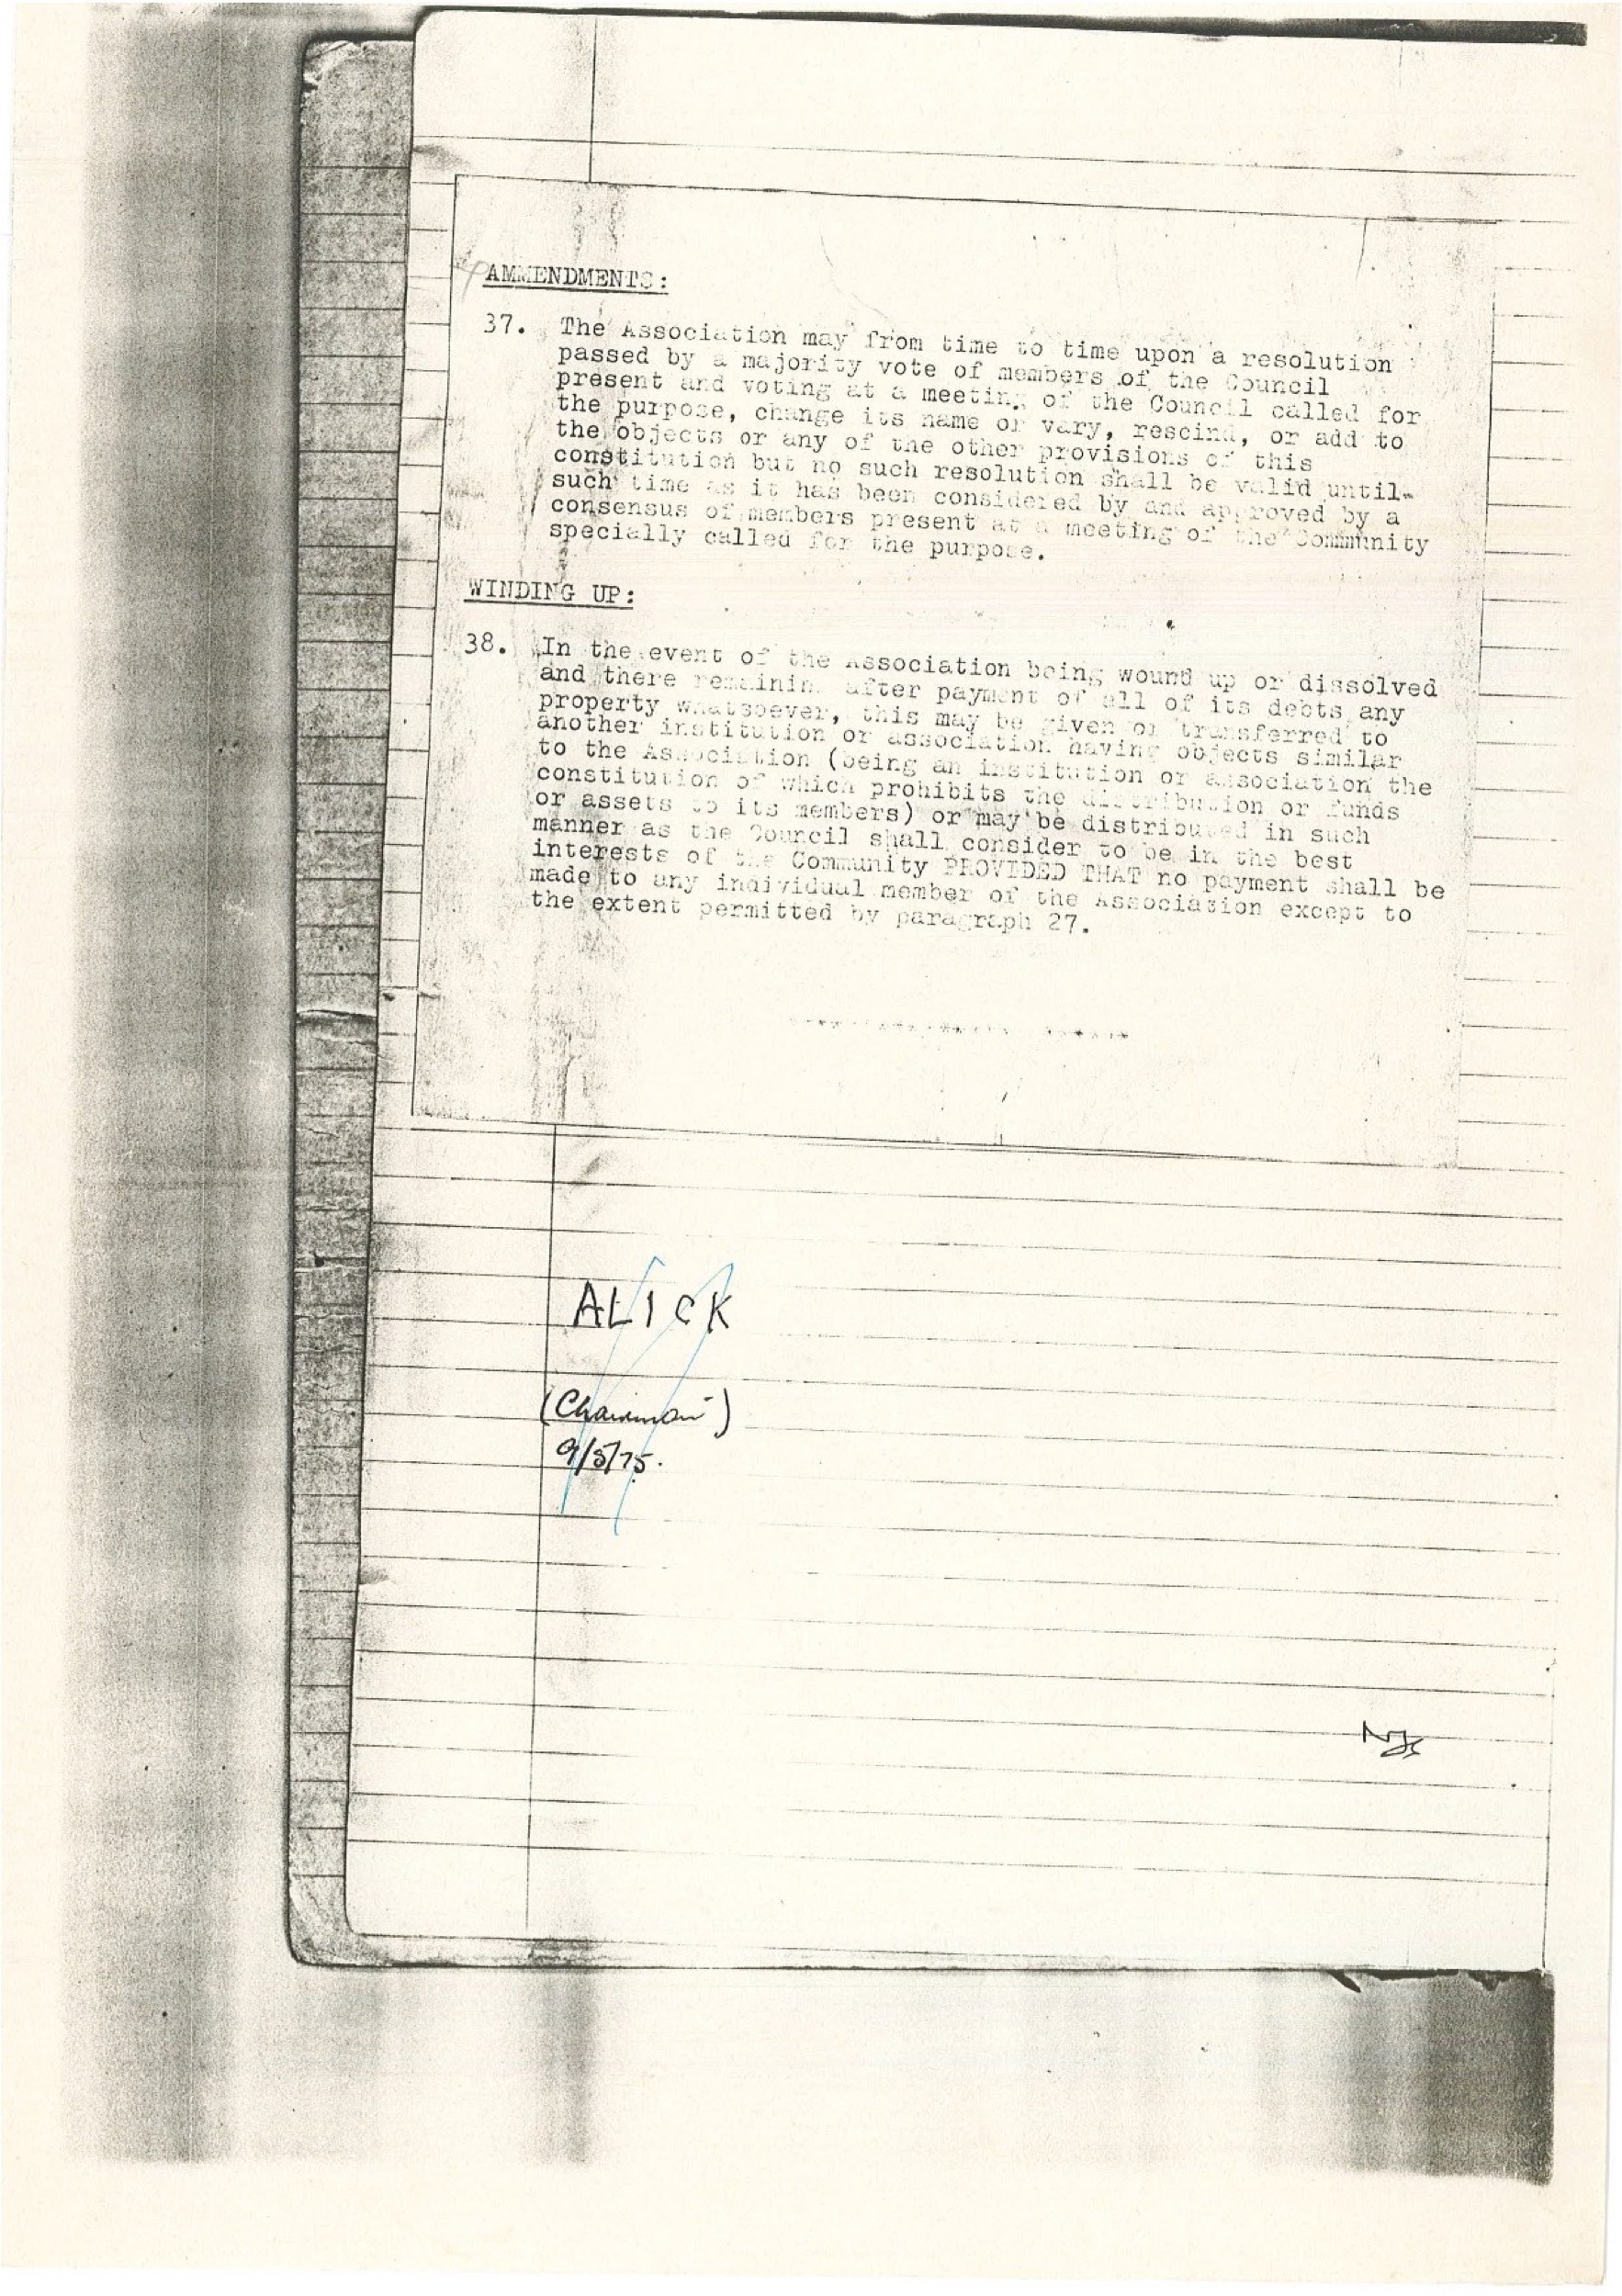 AMMENDMENTS:
37. The Association may from time to time upon a resolution
passed by a majority vote of members of the Council
present and voting at a meeting of the Council called for
the purpose, change its name or vary, rescind, or add to
the objects or any of the other provisions of this
constitution but no such resolution shall be valid until
such time as it has been considered by and approved by a
consensus of members present at a meeting of the Community
specially called for the purpose.
WINDING UP:
38. In the event of the Association being wound up or dissolved
and there remaining after payment of all of its debts any
property whatsoever, this may be given or transferred to
another institution or association having objects similar
to the Association (being an institution or association the
constitution of which prohibits the distribution or funds
or assets to its members) or may be distributed in such
manner as the Council shall consider to be in the best
interests of the Community PROVIDED THAT no payment shall be
made to any individual member of the Association except to
the extent permitted by paragraph 27.
ALICK
(Chairman)
9/5/75.